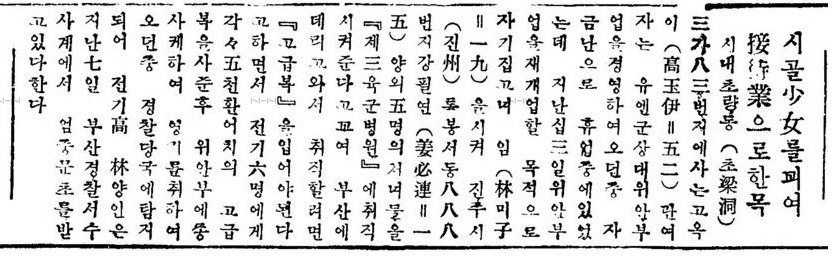 시골少女를꾀여
接待業으로한목
시내초량동 (초梁洞)
三가八三번지에사는고옥
이 (高玉伊=五二) 란여
자는 유엔군상대위안부
업을경영하여오던중 자
금난으로 휴업중에있었
는데 지난십三일위안부
업을재개업할 목적으로
자기집고녀 임 (林미子
=一九) 을시켜 진주시
(진州) 봉서동八八八
번지강필연 (姜必連=一
五) 양외五명의처녀들을
『제三육군병원』에취직
시켜준다고꼬여 부산에
데리고와서 취직할려면
『고급복』을입어야된다
고하면서 전기六명에게
각々五천환어치의 고급
복을사준후 위안부에종
사케하여 잉기를취하여
오던중 경찰당국에탐지
되어 전기高 林양인은
지난七일 부산경찰서수
사계에서 엄중문초를받
고있다한다